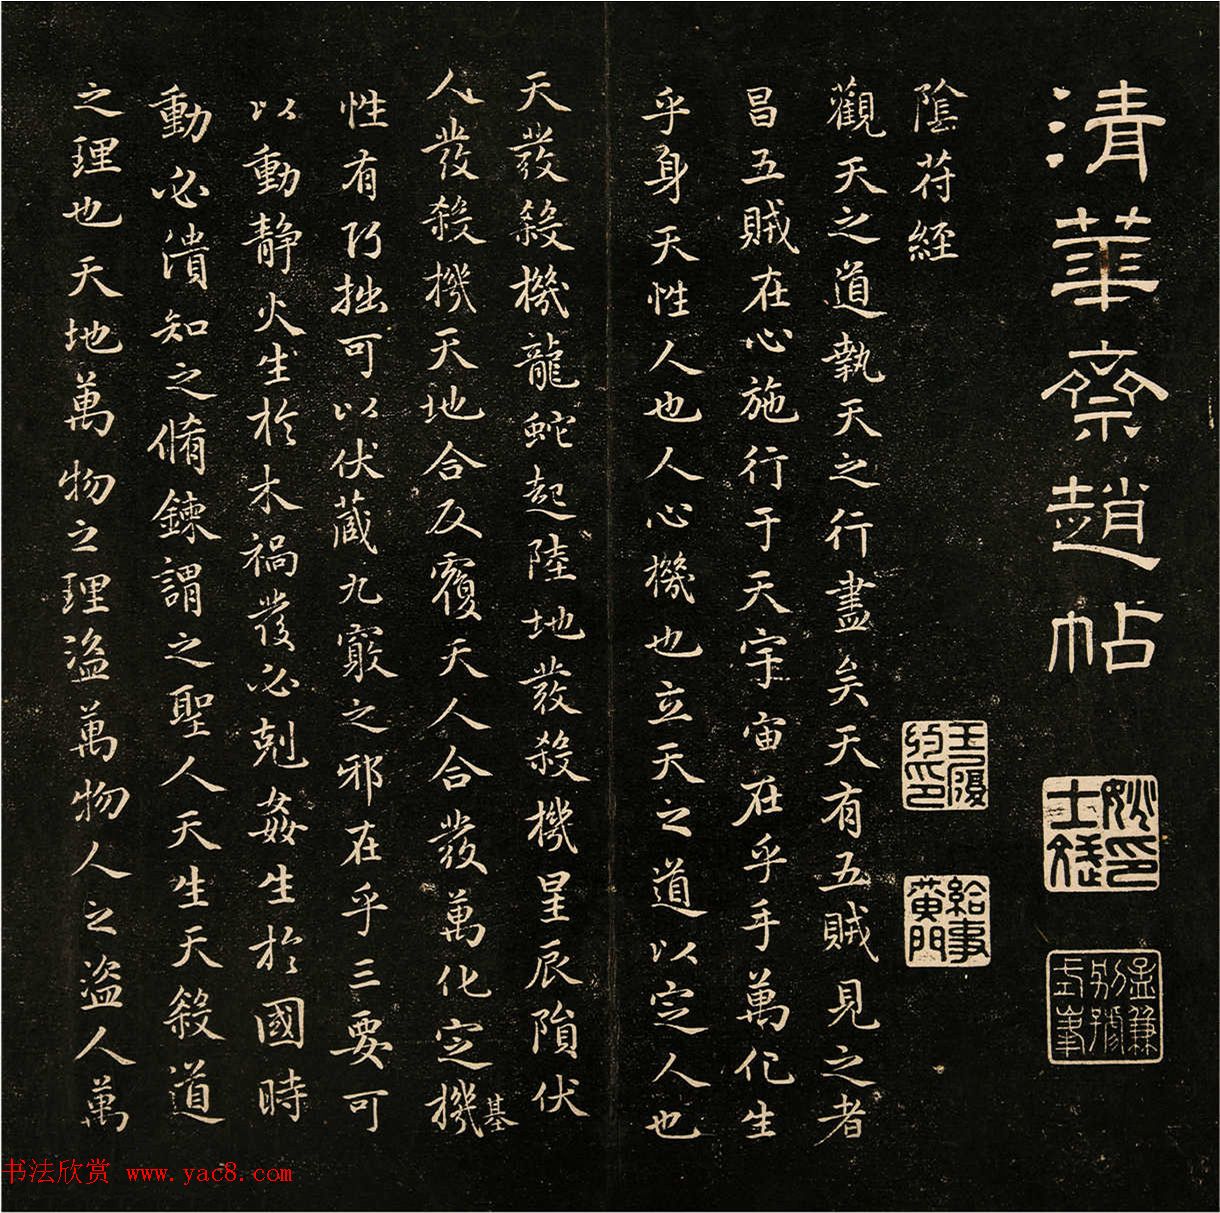 清華齋趙帖
陰苻經
給事黃門
觀天之道執天之行盡矣天有五賊見之者
昌五賊在心施行于天宇宙在乎手萬化生
乎身天性人也人心機也立天之道以定人也
天發殺機龍蛇起陸地發殺機星辰隕伏
人發殺機天地合反覆天人合發萬化定機
基
性有巧拙可以伏藏九竅之邪在乎三要可
以動静火生於木禍發必剋姦生於國時
動必潰知之脩鍊謂之聖人天生天殺道
之理也天地萬物之理盜萬物人之盜人萬
书法欣赏 www.yac8.com